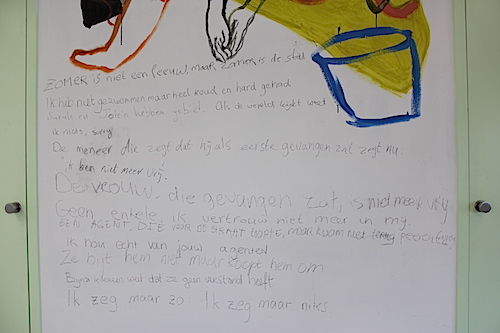 ZOMER is niet een leeuw, maar Zomer is de stal
Ik heb niet gezwommen maar heel koud en hard gehad
en gebeld. Als de wereld kijkt weet
ik niets, sorry
De meneer die zegt dat hij als eerste gevangen zat zegt nu
ik ben niet meer vrij.
De vrouw die gevangen zat, is niet meer vrij
Geen enkele ik vertrouw niet meer in mij.
EEN AGENT, DIE VOOR DE STRAAT LOOPTE, maar kwam niet terug
ik hou echt van jouw agenten
Ze bijt hem niet maar koopt hem om
Bijna iedereen weet dat ze geen verstand heeft
Ik zeg maar zo Ik zeg maar niks